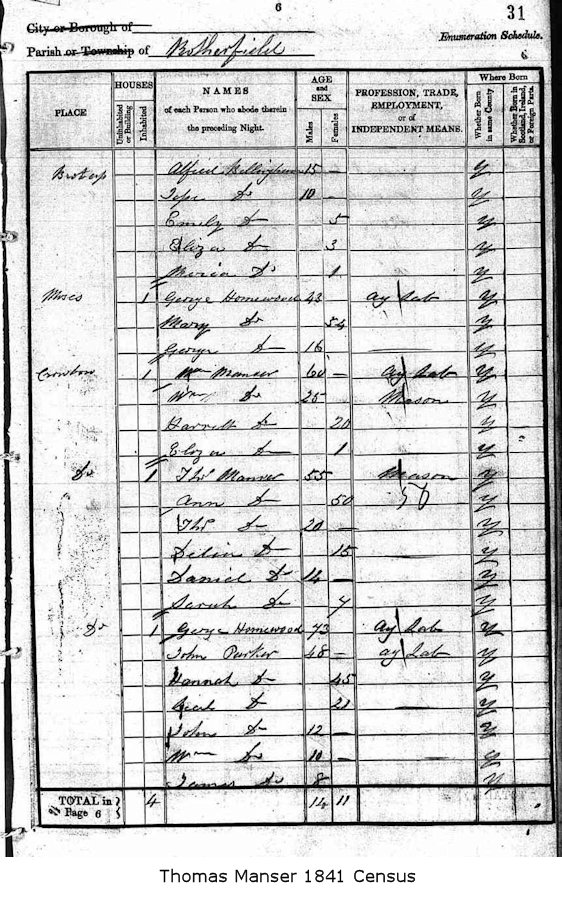 6
31
City or Borough of
Parish or Township of Rotherfield
Enumeration Schedule.
6
PLACE
HOUSES
Uninhabited or Building
Inhabited
NAMES
of each Person who abode therein
the preceding Night.
AGE
and
SEX
Males
Females
PROFESSION, TRADE,
EMPLOYMENT,
or of
INDEPENDENT MEANS.
Where Born
Whether Born in same County
Whether Born in Scotland, Ireland, or Foreign Parts.
Alfred Bellingham 15 – y
Do 10 – y
Emily Do 5 y
Eliza Do 3 y
Maria Do 1 y
1 George Homewood 43 Ag Lab y
Mary Do 54 y
George Do 16 y
Crowboro 1 Wm Manser 60 – Ag Lab y
Do 25 Mason y
Harriett Do 20 y
Eliza Do 1 y
Do 1 Thos Manser 55 Mason y
Ann Do 50 y
Thos Do 20 – y
Do 15 y
Daniel Do 14 – y
Sarah Do 7 y
Do 1 George Homewood 73 Ag Lab y
John Parker 48 – Ag Lab y
Hannah Do 45 y
Do 21 y
John Do 12 – y
Wm Do 10 – y
James Do 8 y
TOTAL in Page 6 4 14 11
Thomas Manser 1841 Census